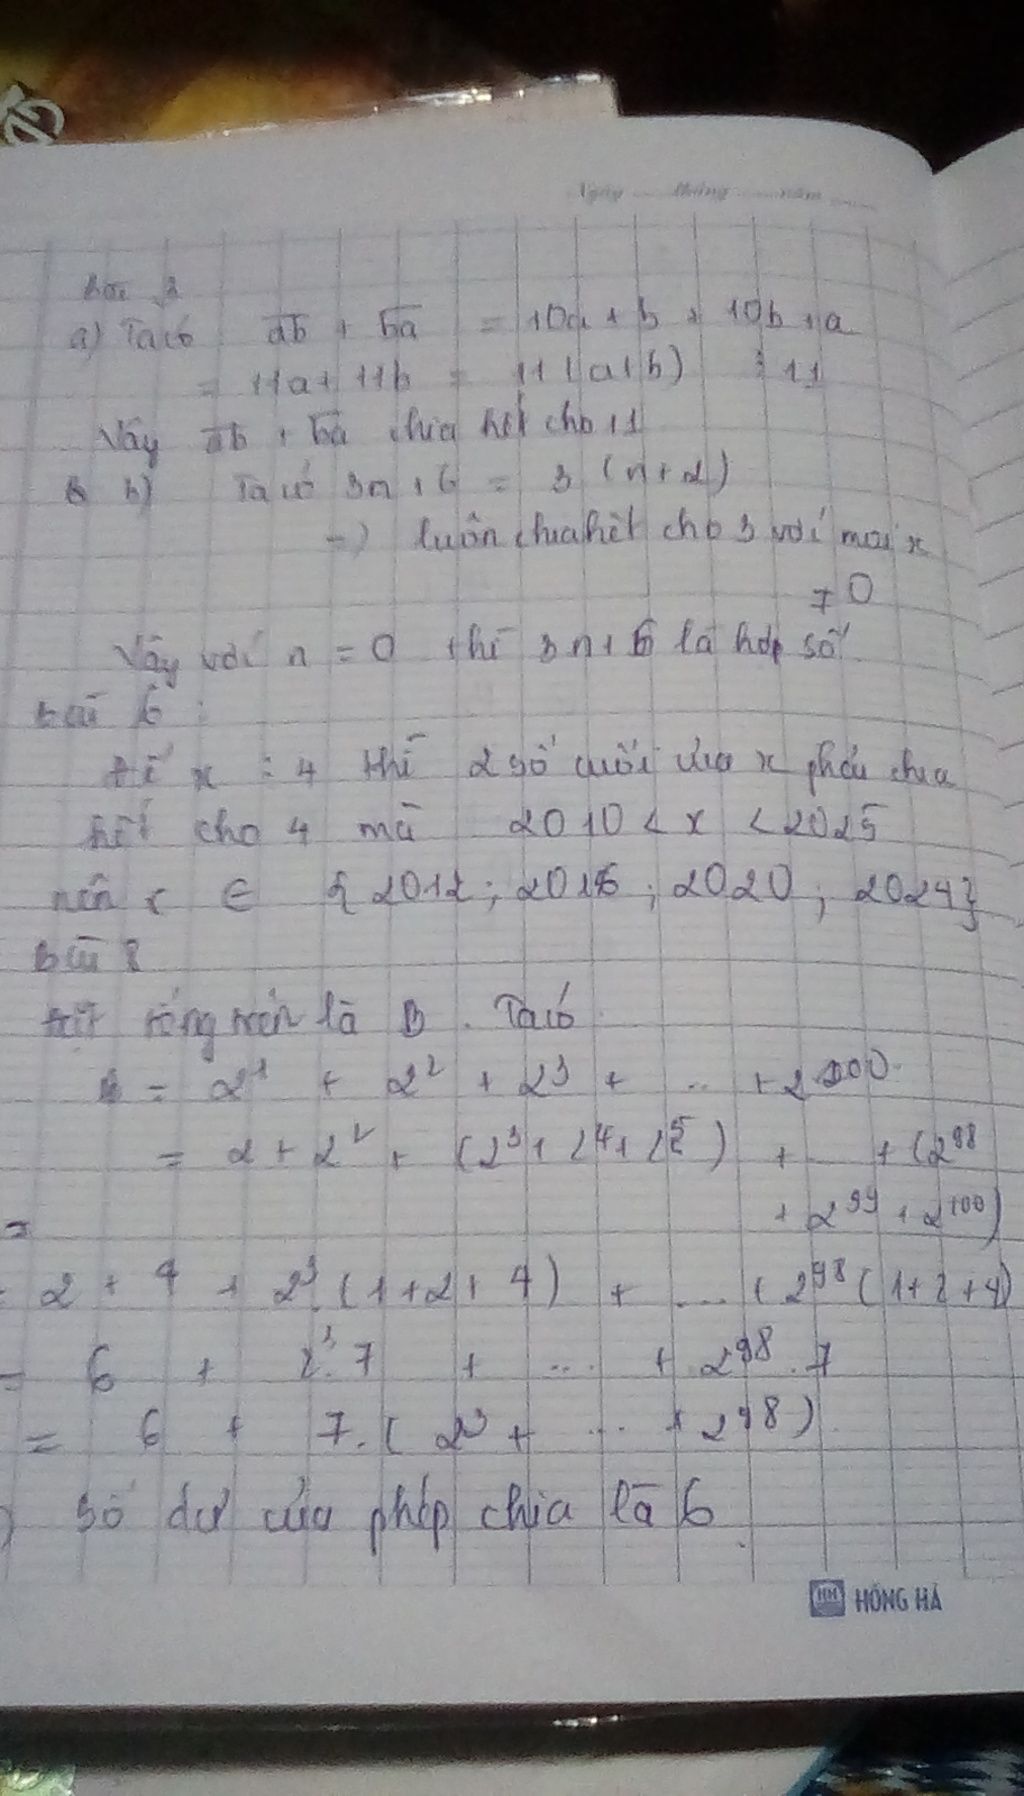 Ngày ..... tháng ..... năm .....
a) Ta có ab + ba = 10a + b + 10b + a
= 11a + 11b = 11 (a+b) ⋮ 11
Vậy ab + ba chia hết cho 11
b) Ta có 3n + 6 = 3 (n+2)
=) luôn chia hết cho 3 với mọi x
≠ 0
Vậy với n = 0 thì 3n + 6 là hợp số
bài 6 :
Để x ⋮ 4 thì 2 số cuối của x phải chia
hết cho 4 mà 2010 < x < 2025
nên x ∈ {2012 ; 2016 ; 2020 ; 2024}
bài 8
tổng trên là B . Ta có
= 2¹ + 2² + 2³ + .. + 2100
= 2 + 2² + (2³ + 2⁴ + 2⁵) + ... + (2⁹⁸
= + 2⁹⁹ + 2¹⁰⁰)
= 2 + 4 + 2³.(1+2+4) + .... (2⁹⁸ (1+2+4)
= 6 + 2³.7 + ... + 2⁹⁸.7
= 6 + 7.( 2³ + ... + 2⁹⁸)
) Số dư của phép chia là 6
HH HỒNG HÀ